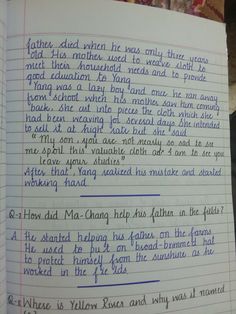 father died when he was only three years
old. His mother used to weave cloth to
meet their household needs and to provide
good education to Yang
"Yang was a lazy boy and once he ran away
from school when his mother saw him coming
back. she cut into pieces the cloth which she
had been weaving for several days. She intended
to sell it at high rate but she said
"My son, you are not nearly so sad to see
me spoil this valuable cloth as I am to see you
leave your studies"
After that Yang realized his mistake and started
working hard.
Q:1 How did Ma-Chang help his father in the fields?
A. He started helping his father on the farms
He used to put on broad-brimmed hat
to protect himself from the sunshine as he
worked in the fields
Where is Yellow River and why was it named